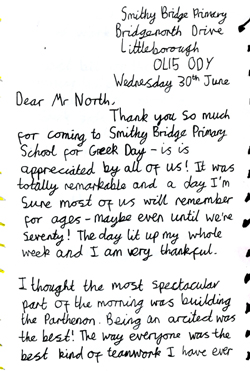 Smithy Bridge Primary
Bridgenorth Drive
Littleborough
OL15 0DY
Wednesday 30th June
Dear Mr North,
Thank you so much
for coming to Smithy Bridge Primary
School for Greek Day - is is
appreciated by all of us! It was
totally remarkable and a day I'm
sure most of us will remember
for ages - maybe even until we're
seventy! The day lit up my whole
week and I am very thankful.
I thought the most spectacular
part of the morning was building
the Parthenon. Being an arcited was
the best! The way everyone was the
best kind of teamwork I have ever